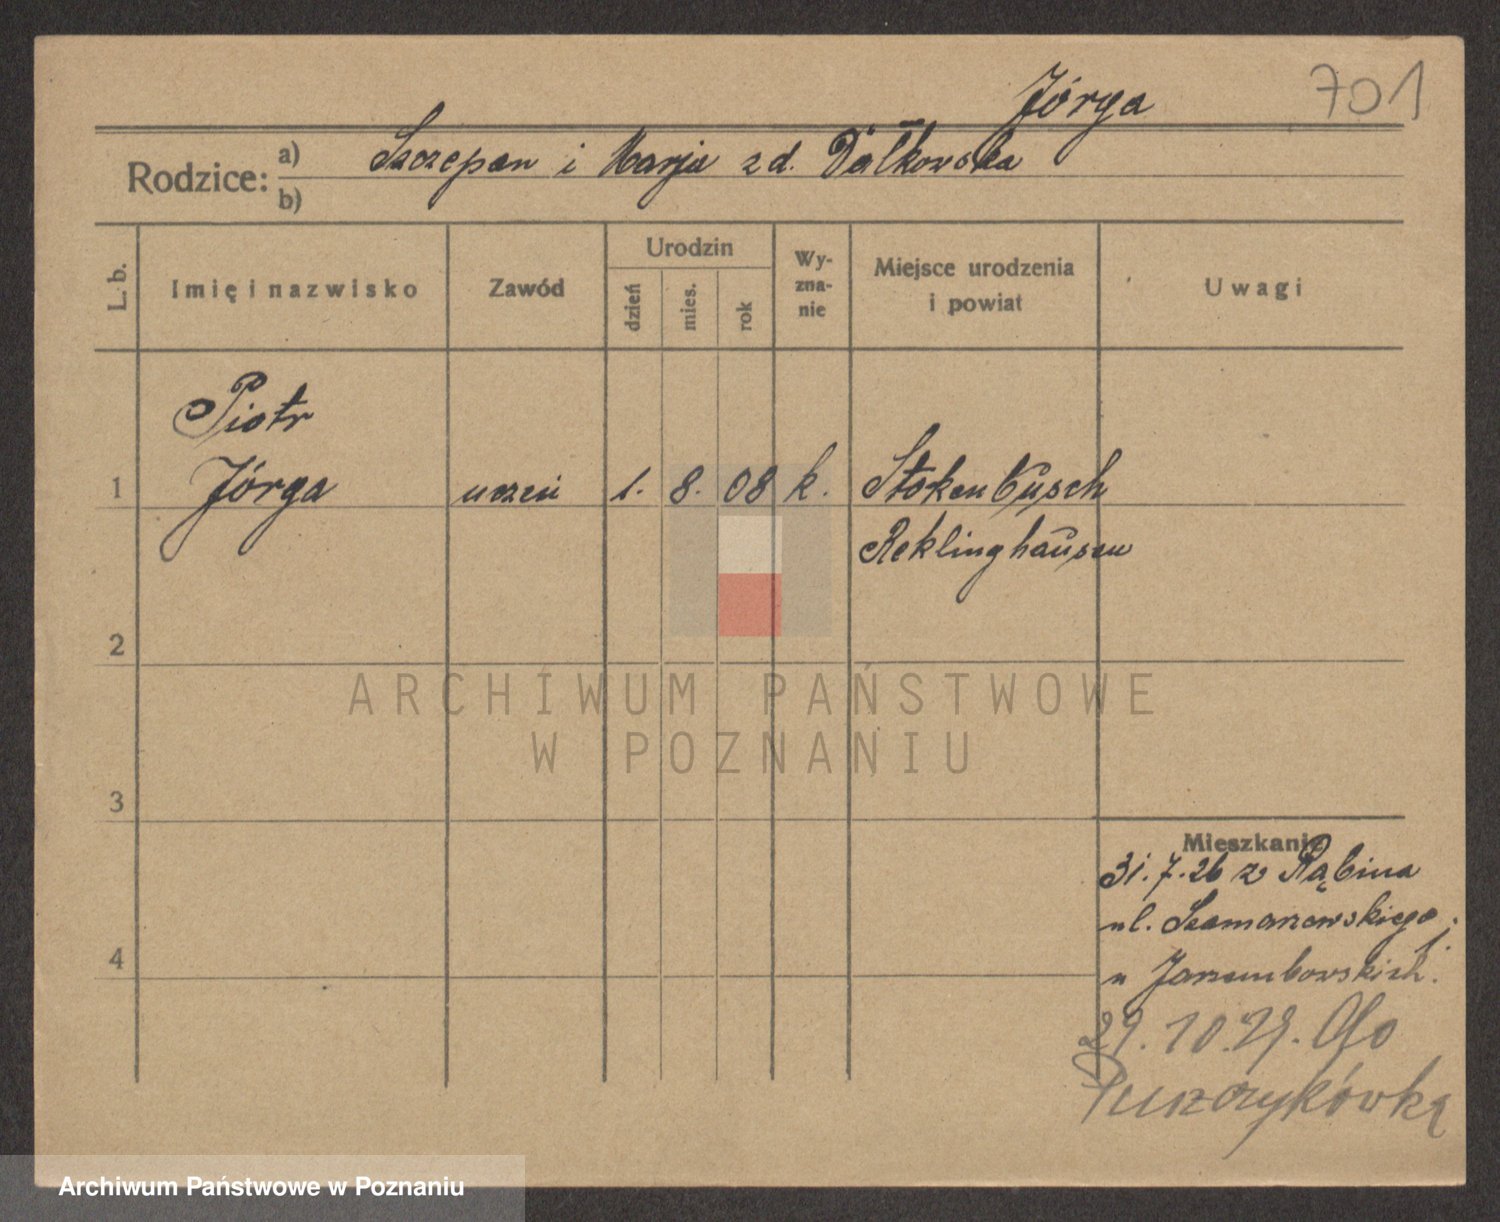 Jórga
701
Rodzice: a) Szczepan i Marja z d. Dałkowska
b)
L. b.
Imię i nazwisko
Zawód
Urodzin
dzień
mies.
rok
Wy-
zna-
nie
Miejsce urodzenia
i powiat
Uwagi
Piotr
1 Jórga uczeń 1. 8. 08 k. Stokenbusch
Reklinghausen
2
3
4
Mieszkanie
31.7.26 z Rąbina
ul. Szamarzewskiego
u Jarzembowskich.
29.10.29. do
Puszczykówka
ARCHIWUM PAŃSTWOWE
W POZNANIU
Archiwum Państwowe w Poznaniu